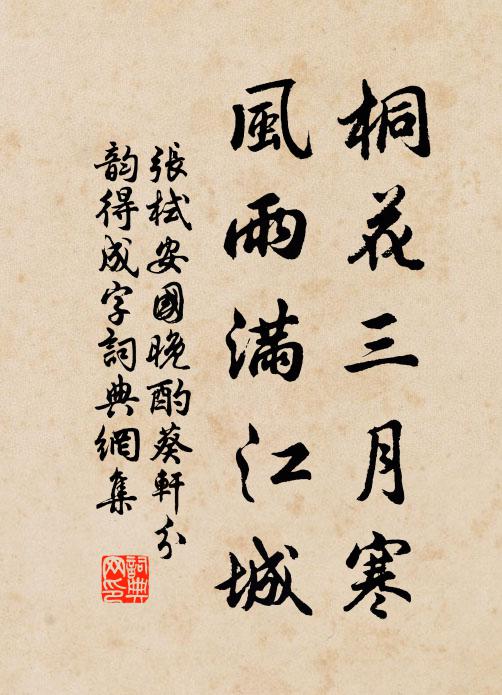 桐花三月寒
風雨滿江城
張栻安國晚酌葵軒分
韵得成字詞典網集
詞典
网印